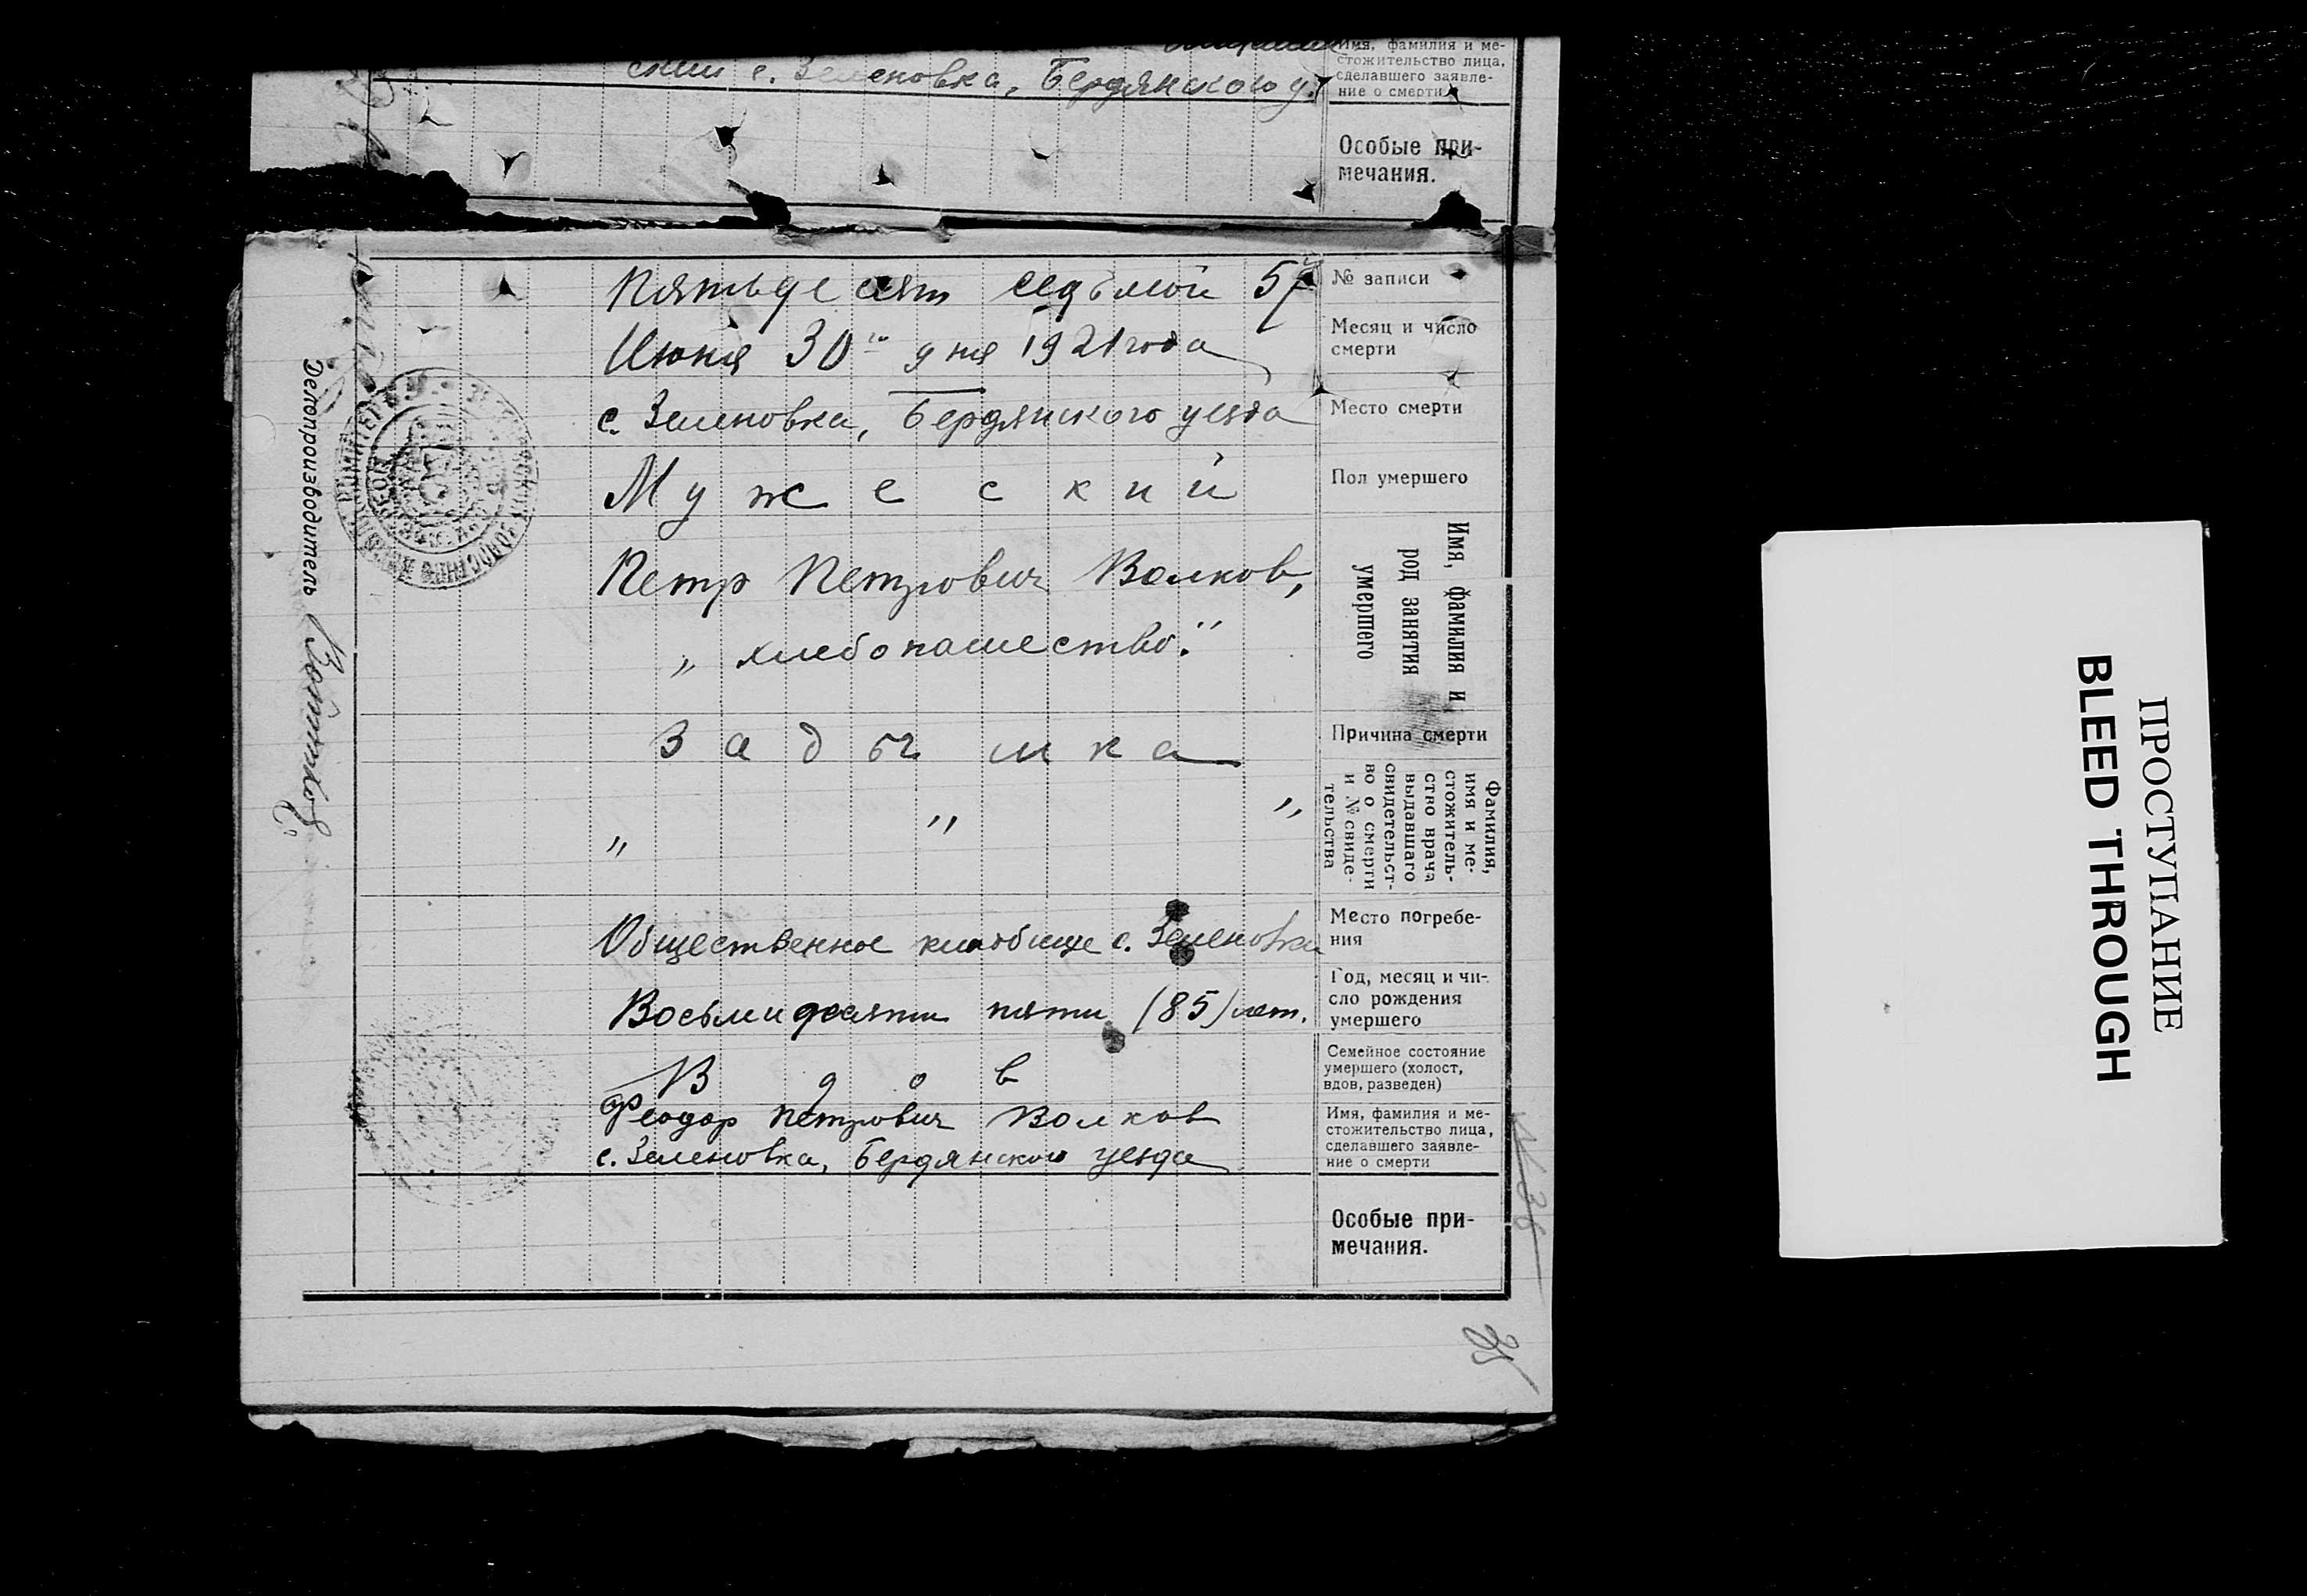 с. Зеленовка, Бердянского у.
Имя, фамилия и ме-
стожительство лица,
сделавшего заявле-
ние о смерти
Особые при-
мечания.
Пятьдесят седьмой 57
№ записи
Июня 30го дня 1921 года
Месяц и число
смерти
с. Зеленовка, Бердянского уезда
Место смерти
Мужеский
Пол умершего
Петр Петрович Волков,
„хлебопашество."
Имя, фамилия и
род занятия
умершего
Задышка
Причина смерти
„ " "
Фамилия,
имя и ме-
стожитель-
ство врача
выдавшего
свидетельст-
во о смерти
и № свиде-
тельства
Общественное кладбище с. Зеленовка
Место погребе-
ния
Восьмидесяти пяти (85) лет.
Год, месяц и чи-
сло рождения
умершего
Вдов
Семейное состояние
умершего (холост,
вдов, разведен)
Феодор Петрович Волков
с. Зеленовка, Бердянского уезда
Имя, фамилия и ме-
стожительство лица,
сделавшего заявле-
ние о смерти
Особые при-
мечания.
Делопроизводитель
ПРОСТУПАНИЕ
BLEED THROUGH